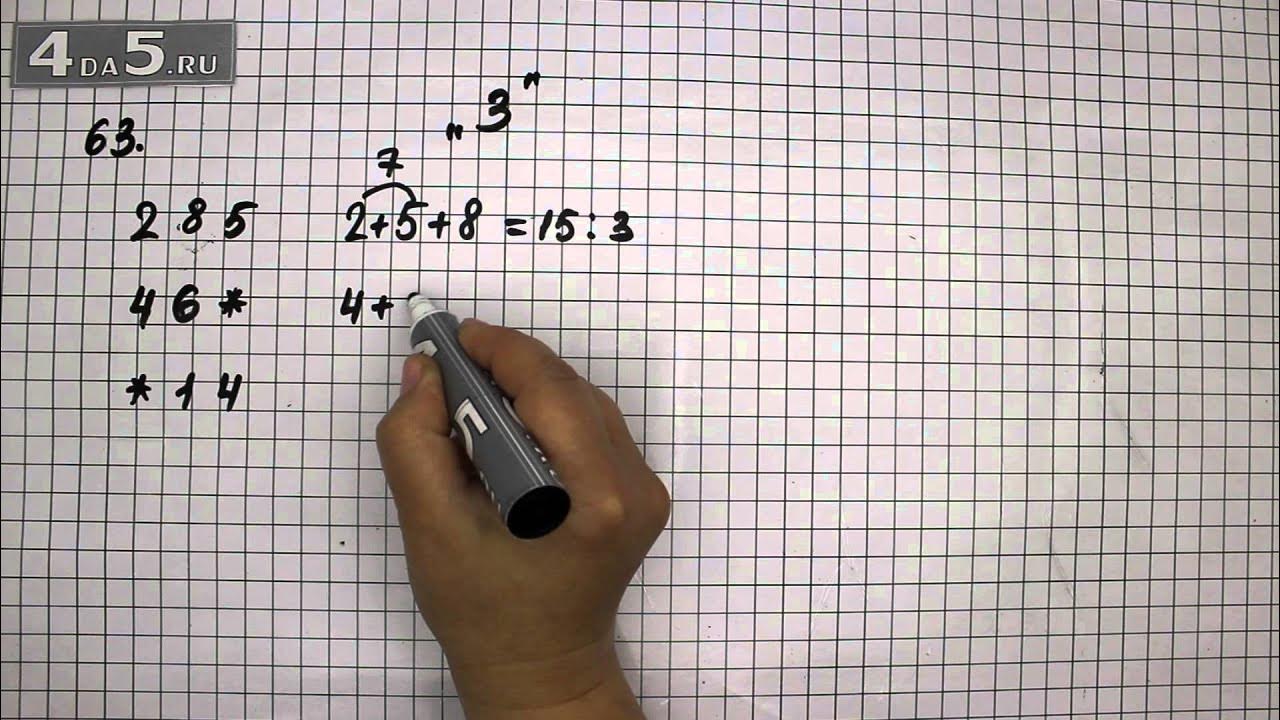 4DA5.RU
„3"
63.
7
2 8 5 2+5+8 = 15 : 3
4 6 * 4+
* 1 4